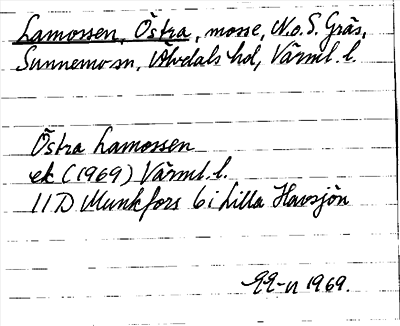 Lamossen, Östra, mosse, N.o.S. Gräs,
Sunnemo sn, Älvdals hd, Värml. l.
Östra Lamossen
ek (1969) Värml. l.
11D Munkfors 6 i Lilla Havsjön
1969.